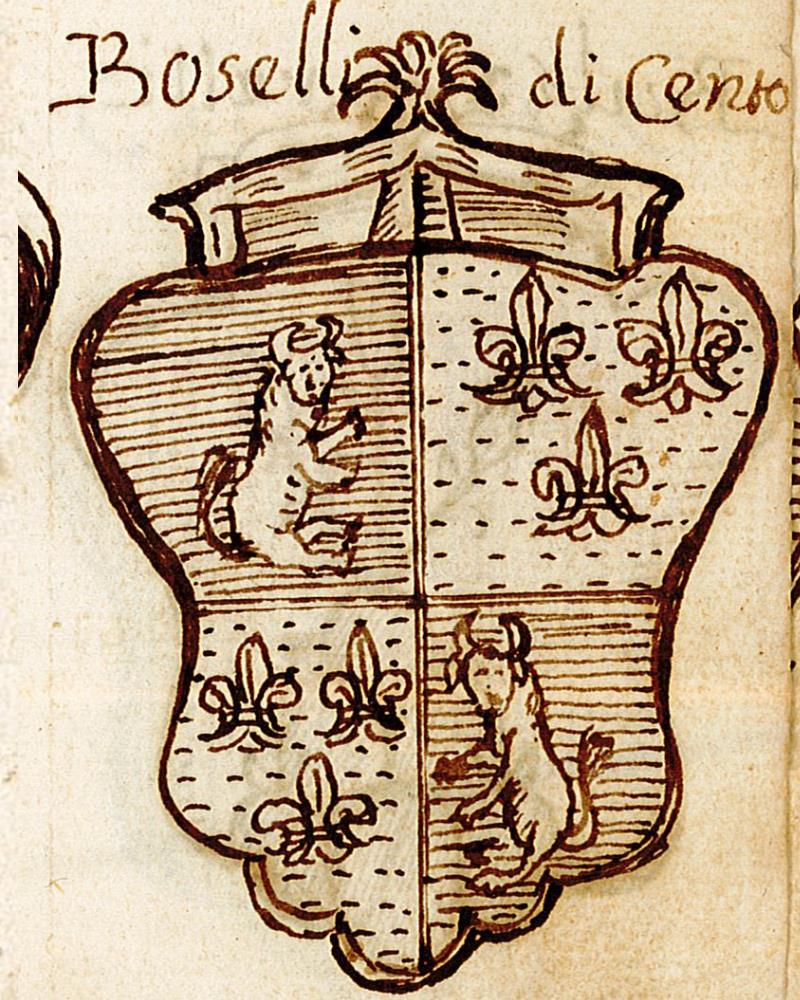 Boselli di Cento